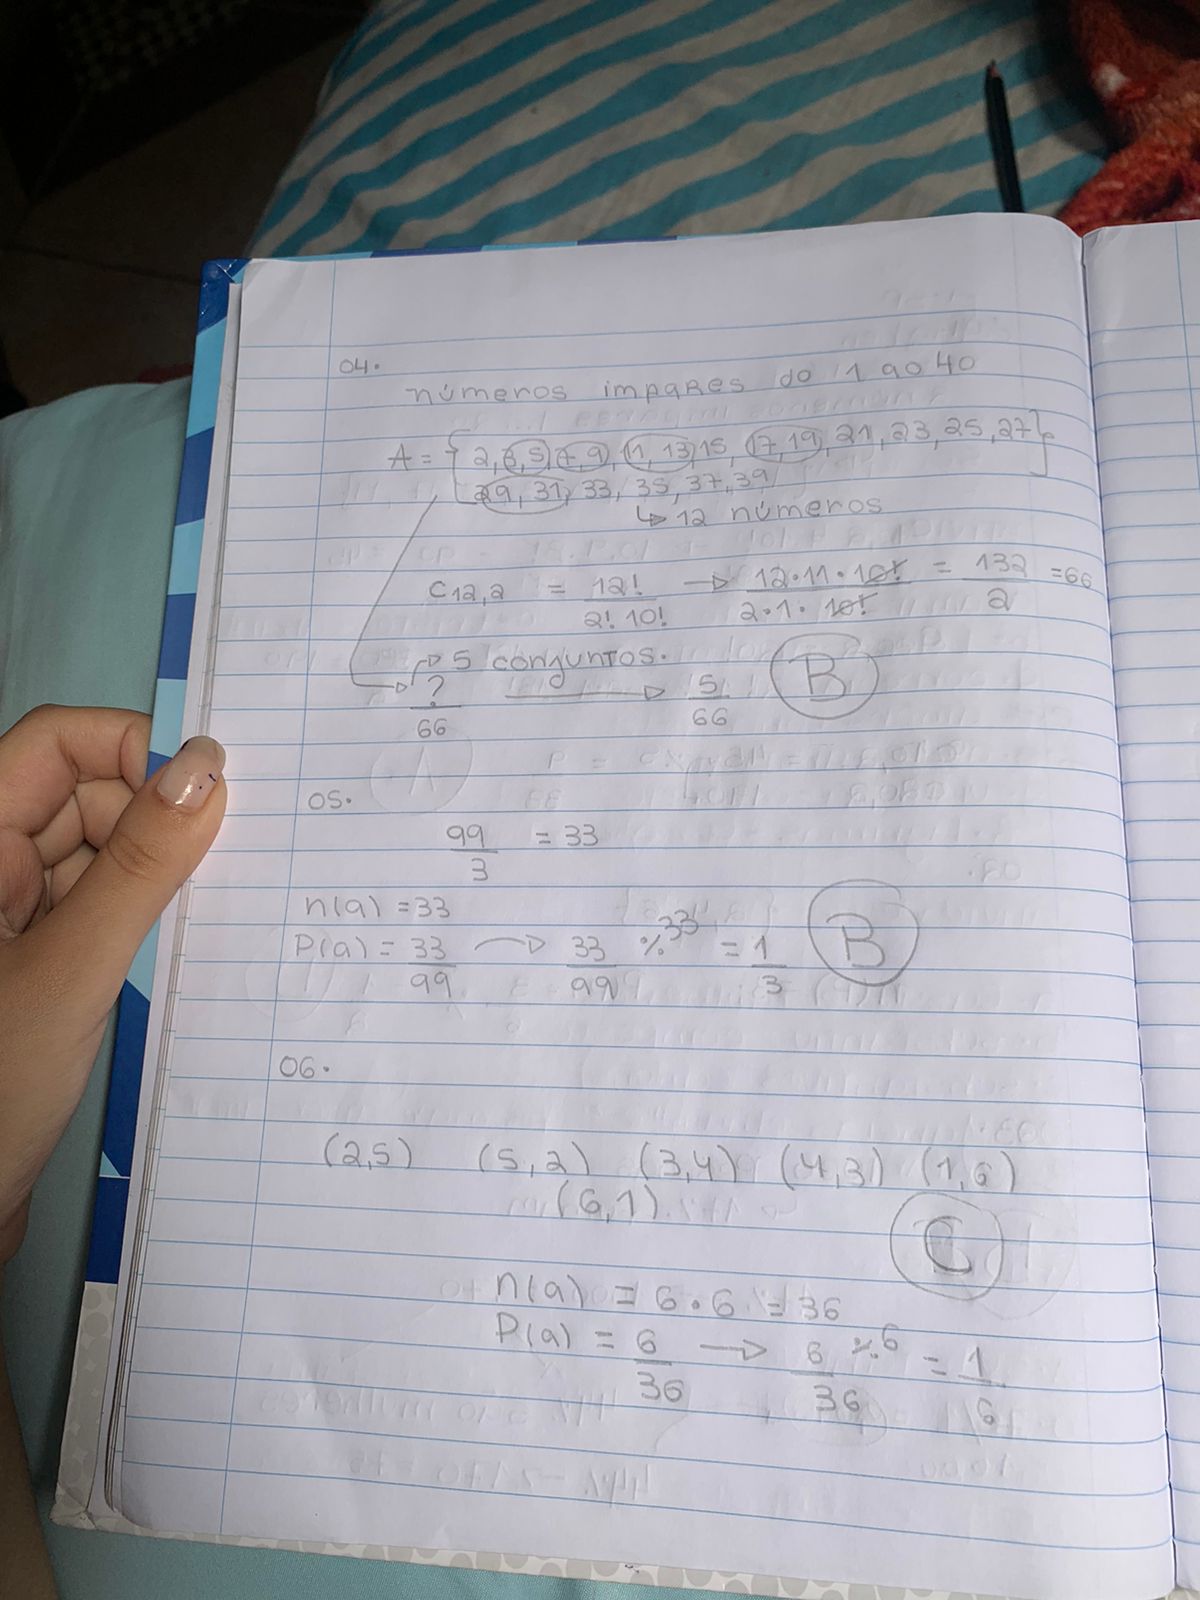 04.
números impares do 1 ao 40
A = { 2, 3, 5, 7, 9, 11, 13, 15, 17, 19, 21, 23, 25, 27 }
29, 31, 33, 35, 37, 39
↳ 12 números
C12,2 = 12! / 2! 10! → 12·11·10! / 2·1·10! = 132 / 2 = 66
→ 5 conjuntos.
? / 66 → 5 / 66 B
05.
99 / 3 = 33
n(a) = 33
P(a) = 33 / 99 → 33 / 99 ÷ 33 = 1 / 3 B
06.
(2,5) (5,2) (3,4) (4,3) (1,6)
(6,1)
C
n(a) = 6·6 = 36
P(a) = 6 / 36 → 6 / 36 ÷ 6 = 1 / 6